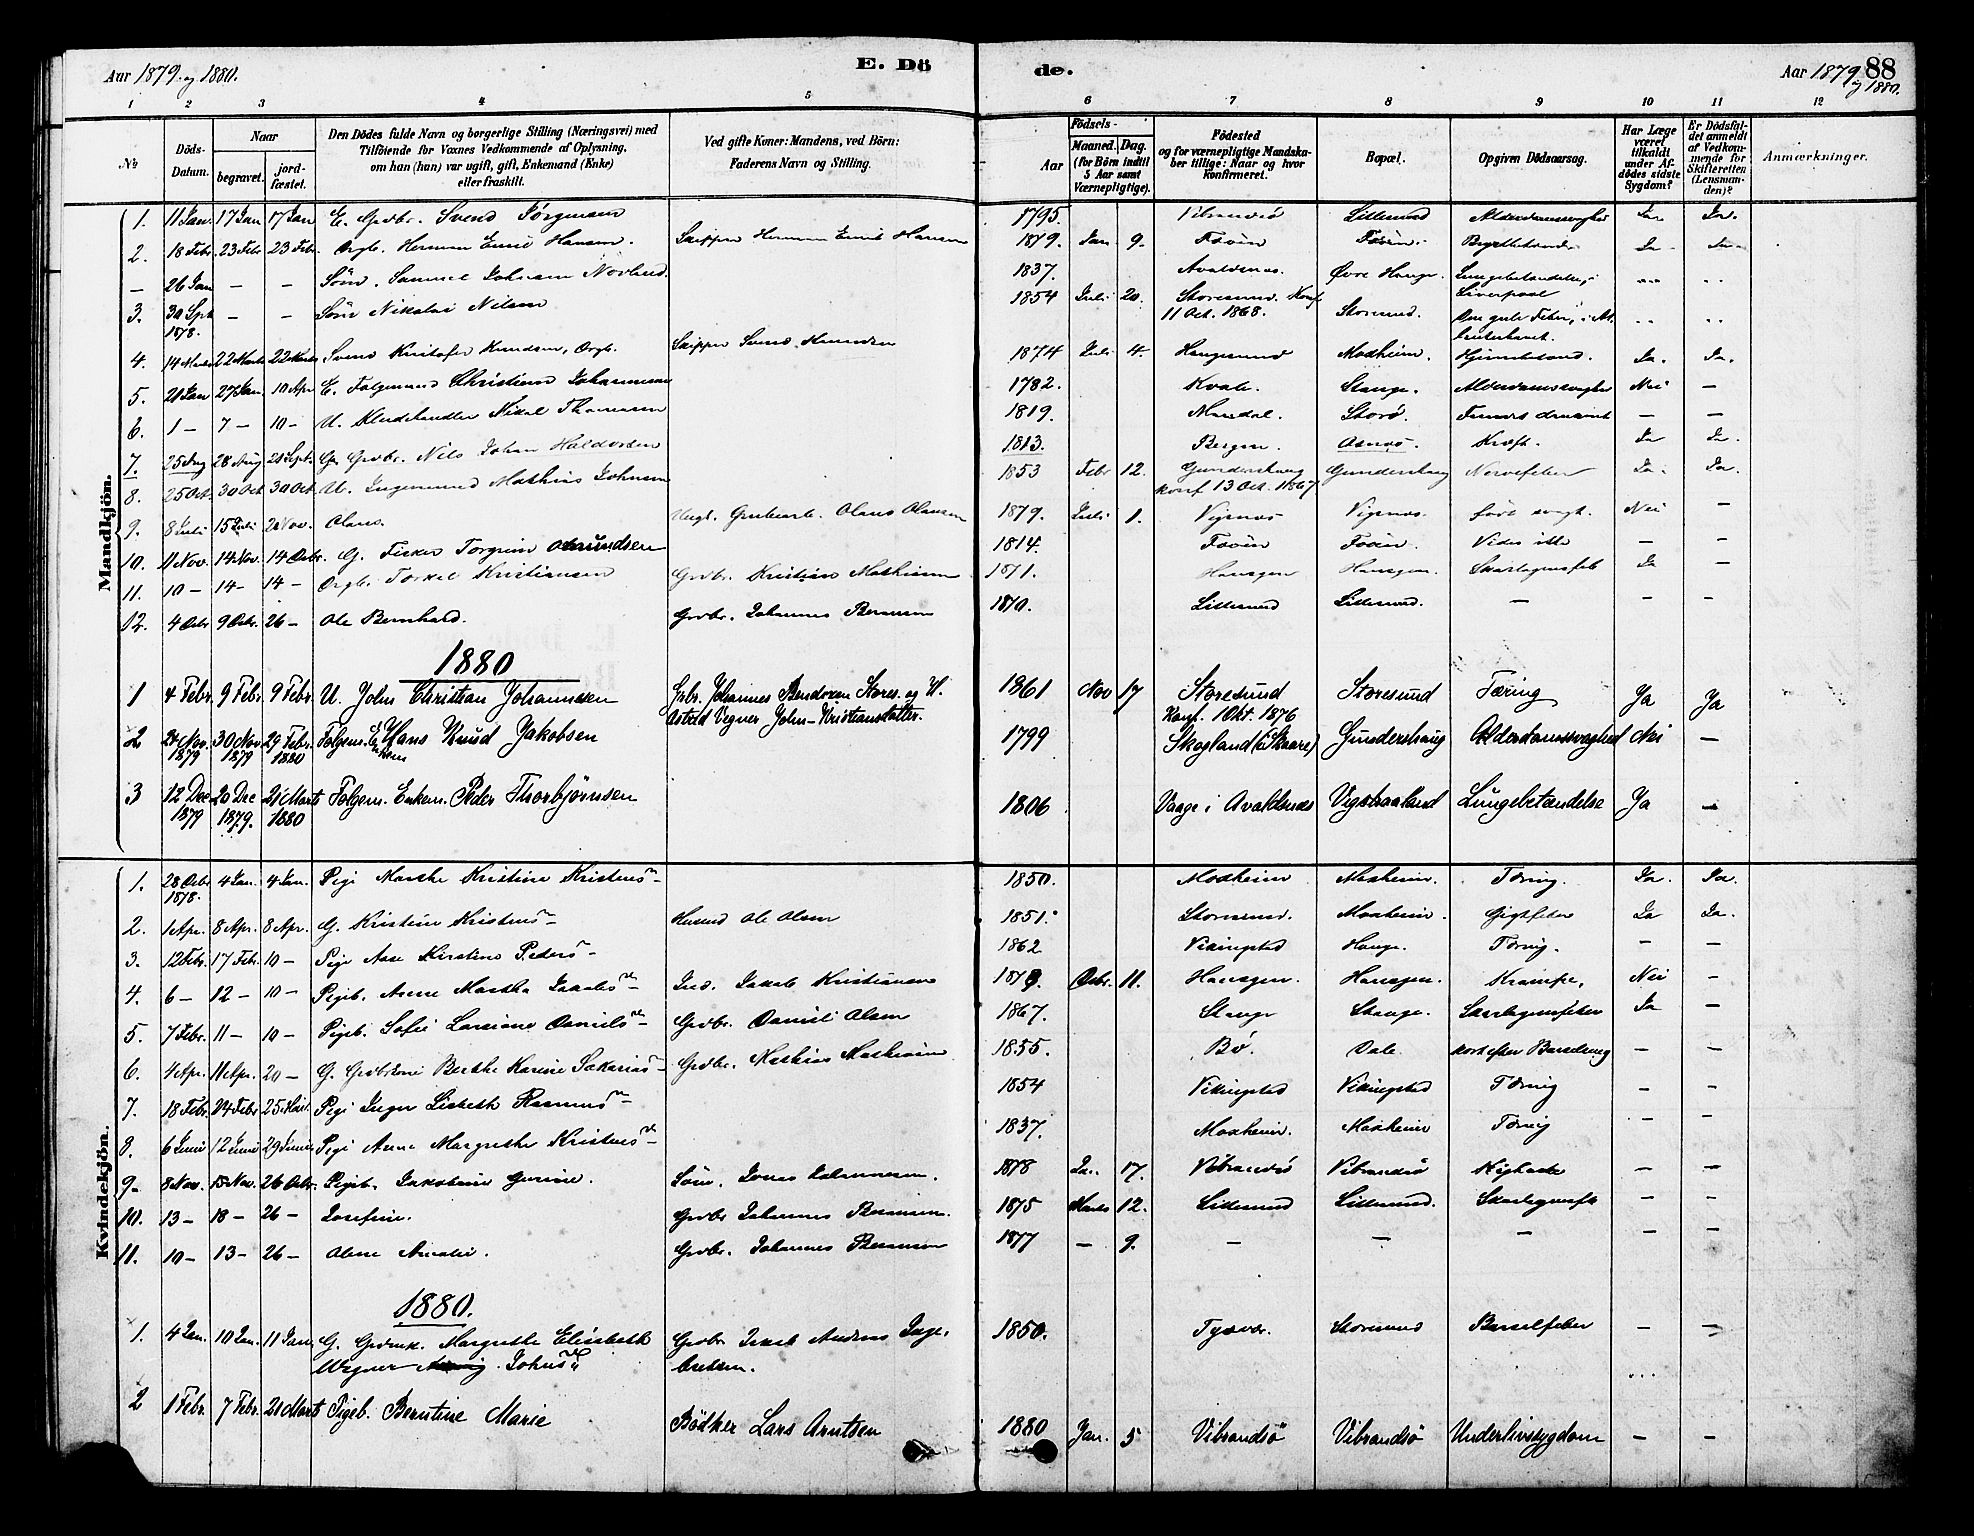 Aar 1879 og 1880.
E. Dö
de.
Aar 1879 og 1880.
88
1 2 3 4 5 6 7 8 9 10 11 12
No
Döds-Datum.
Naar
begravet.
jord-fæstet.
Den Dödes fulde Navn og borgerlige Stilling (Næringsvei) med
Tilföiende for Voxnes Vedkommende af Oplysning,
om han (hun) var ugift, gift, Enkemand (Enke)
eller fraskilt.
Ved gifte Koner: Mandens, ved Börn:
Faderens Navn og Stilling.
Födsels-
Aar
Maaned. Dag.
(for Börn indtil
5 Aar samt
Værnepligtige).
Födested
og for værnepligtige Mandska-
ber tillige: Naar og hvor
konfirmeret.
Bopæl.
Opgiven Dödsaarsag.
Har Læge
været
tilkaldt
under Af-
dödes sidste
Sygdom?
Er Dödsfal-
det anmeldt
af Vedkom-
mende for
Skifteretten
(Lensman-
den)?
Anmærkninger.
Mandkjön.
1. 11 Jan. 17 Jan 17 Jan E. Grdbr. Svend Jörgensen 1795. Vibrandsö Lillesund Alderdomssvaghed Ja. Ja.
2. 18 Febr. 23 Febr 23 Febr. Drgb. Herman Emil Hansen. Skipper Herman Emil Hansen 1879. Jan 9. Fovin Fovin. Ja Ja
– 26 Jan – – Söm. Samuel Johnsen 1837. Avaldsnæs. Övre Hauge. Lungebetændelse, i Liverpool
3. 30 Sept 1878. – – Söm Nikolai Nilsen 1854 Juli 20. Storesund. Konf 11 Oct. 1868. Storesund. Den gule Feber, i
4. 14 Marts 22 Marts 22 Marts Svend Kristofer Knudsen, Drgb. Skipper Svend 1874 Juli 4. Haugesund Moxheim. Ja. Ja.
5. 21 Jan 27 Jan. 10 Apr E. Folgemand Christian Johannesen 1782. Kvale. Stange. Alderdomssvaghed Nei –
6. 1 – 7 – 10 – U. Thomasen 1819. Mandal. Storö. – –
7. 25 Aug 28 Aug 21 Sept. G. Grdbr. Nils Johan Haldorsen 1813. Bergen Asnæs. Kræft. Ja Ja.
8. 25 Oct. 30 Oct 30 Oct U. Ingemund Mathias Johnsen 1853 Febr 12. Gundershaug konf 13 Oct. 1867 Gundershaug Nervefeber Ja. Ja.
9. 8 Juli 15 Juli 2 Nov. Olaus. Ungk. Grubearb. Olaus Olausen 1879. Juli 1. Vigsnæs Vigsnæs. Nei –
10. 11 Nov. 14 Nov. 14 Decbr. G. Fisker Torgrim Amundsen 1814. Fovin Fovin. Vides ikke – –
11. 10 – 14 – 14 – Drgb. Torkel Kristiansen Grdbr. Kristian Mathisen 1871. Hausgen Hausgen. Skarlagensfeb Ja –
12. 4 Decbr 9 Decbr. 26 – Ole Bernhard. Grdbr. Johannes 1870. Lillesund Lillesund. – – –
1880
1 4 Febr. 9 Febr. 9 Febr. U. John Christian Johannesen Grbr. Johannes Bendixen Stores. og H. Astrid Vegner John-Kristiansdatter. 1861 Nov 17 Storesund Konf. 1 Okt. 1876 Storesund Tæring Ja Ja
2 24 Nov. 1879 30 Nov 1879 29 Febr. 1880 Folgem. Enkem Hans Knud Jakobsen 1799 Skogland (i Skaare) Gundershaug Alderdomssvaghed Nei –
3 12 Dec 1879 20 Dec 1879. 21 Marts 1880 Folgem. Enkem. Peder Thorbjörnsen 1806 Vaage i Avaldsnæs Vigstraaland Lungebetændelse Ja –
Kvindekjön.
1. 28 Decbr 1878. 4 Jan. 4 Jan. Pige Marthe Kristine 1850. Moxheim Moxheim. Tæring. Ja. Ja.
2. 1 Apr. 8 Apr. 8 Apr. G. Kristine Ole Olsen 1851. Storesund. Moxheim. Gigtfeber Ja Ja.
3. 12 Febr. 17 Febr. 10 – Pige Aase Kirstine Peders 1862 Vikingstad Hauge. Tæring. – –
4. 6 – 12 – 10 – Pigeb. Anne Martha Jakobs Jakob Kristiansen 1878. Decbr. 11. Hausgen. Hausgen. Krampe, Nei –
5. 7 Febr. 11 – 10 – Pigeb. Sofie Daniels Grdbr. Daniel Olsen 1867. Stange Stange. Skarlagensfeber Ja –
6. 4 Apr. 11 Apr. 20 – G. Grdbrkone Berthe Karine Sakarias Grdbr. Mathias Mathiasen 1855. Bö. Dale. kort efter Barselseng – –
7. 18 Febr. 24 Febr 25 Marts Pige Inger Lisbeth Rasmus 1854 Vikingstad Vikingstad Tæring – –
8. 6 Juni 12 Juni 29 Juni Pige Anne Margrethe 1837. Moxheim. Moxheim Tæring – –
9. 8 Nov. 15 Nov. 26 Decbr. Pigeb. Jakobine Gurine. Söm. Jonas Johannesen. 1878 Ja. 17. Vibrandsö Vibrandsö Kighoste – –
10. 13 – 18 – 26 – Josefine. Grdbr Johannes 1875 Marts 12. Lillesund Lillesund. Skarlagensfb – –
11. 10 – 13 – 26 – Oline Amalie. Grdbr. Johannes 1877 – 9. – – – – –
1880.
1. 4 Jan. 10 Jan. 11 Jan. G. Margrethe Elisabeth Wegner Johns Grdbr Jakob Andreas Inge-bretsen. 1850. Tysvær. Storesund Barselfeber – –
2 1 Febr. 7 Febr. 21 Marts Pigeb. Berntine Marie Bödker Lars Arntsen 1880 Jan. 5 Vibrandsö Vibrandsö Underlivssygdom – –